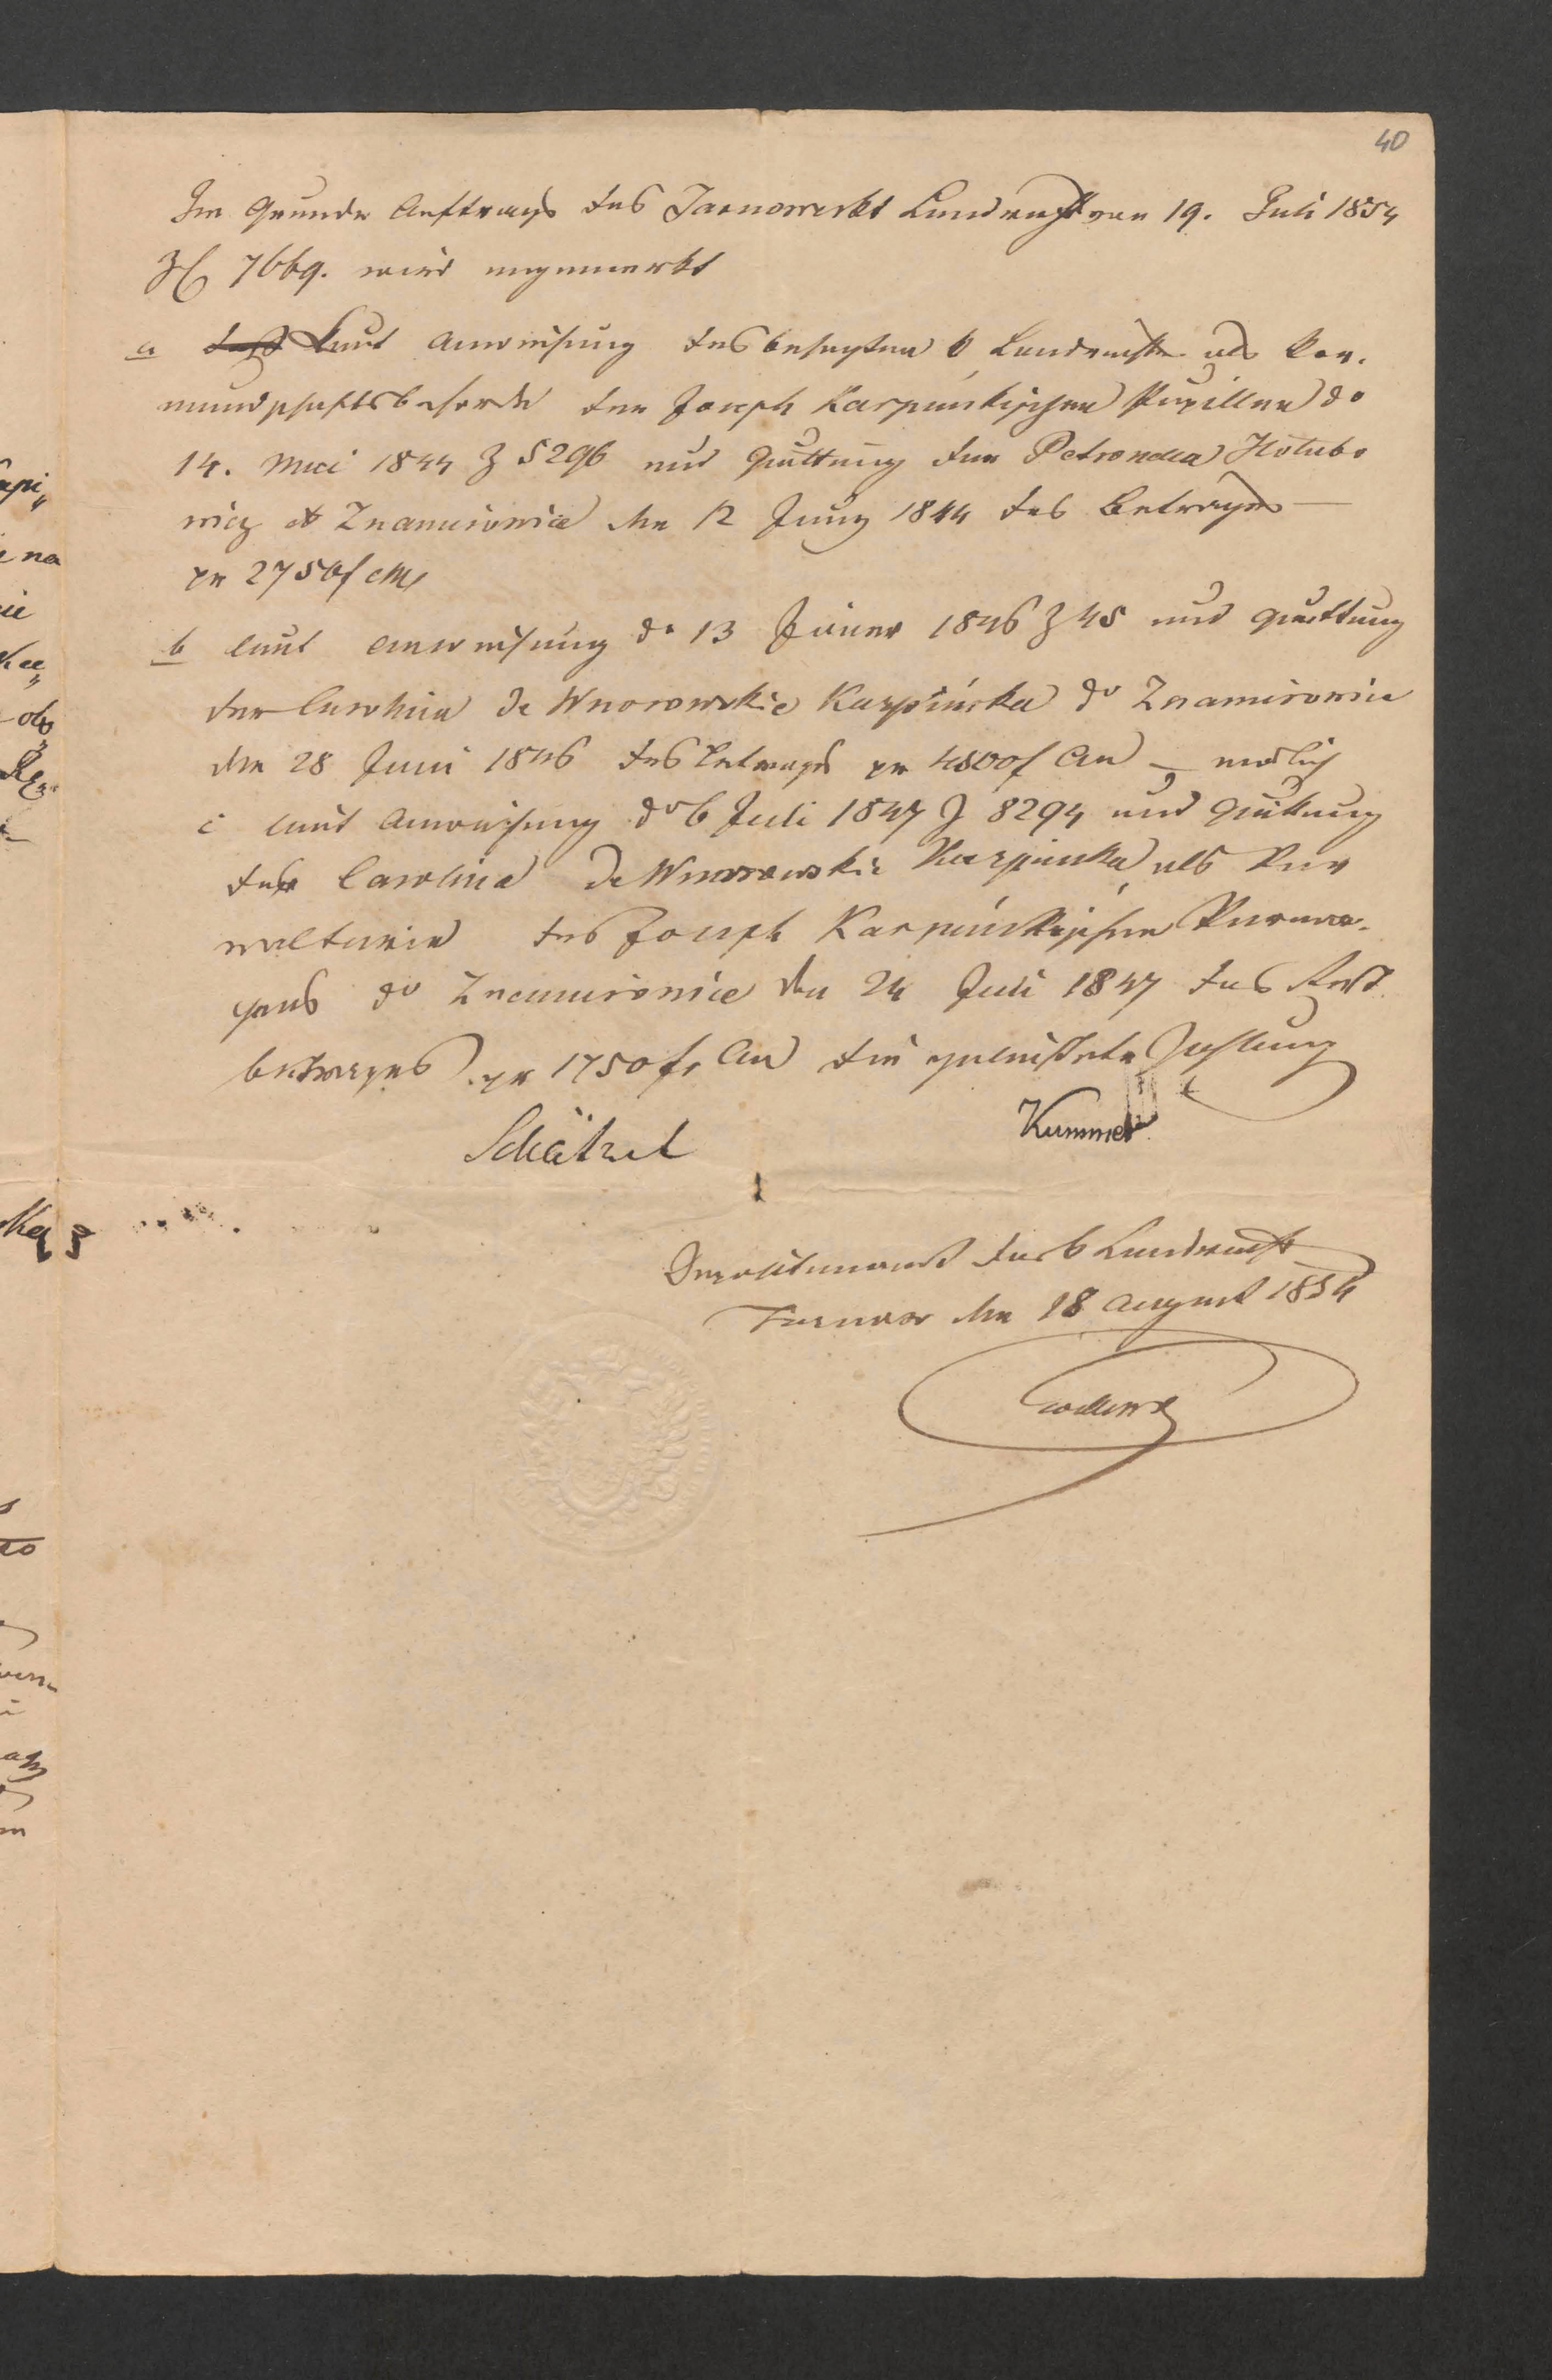 40
Im Grunde Auftrags des Tarnower kk Landrechts vom 19. Juli 1854
Zl 7669. wird angemerkt
a daß Laut Anweisung des besagten k Landrechts als Vor-
mundschaftsbehörde der Joseph Karpińskischen Pupillen do
14. Mai 1844 Z 5296 und Quittung der Petronella Hołubo
wicz do Znamirowice den 12 Juny 1844 des Betrages
pr 2750 f CMz
b laut Anweisung do 13 Jäner 1846 Z 45 und Quittung
der Carolina de Wnorowskie Karpińska do Znamirowice
den 28 Juni 1846 des Betrages pr 4500 f CM – endlich
c laut Anweisung do 6 Juli 1847 Z 8294 und Quittung
der Carolina de Wnorowskie Karpinska als Ver
walterin des Joseph Karpińskischen Vermö-
gens do Znamirowice den 24 Juli 1847 des Rest
betrages pr 1750 fr CM die geleistete Zahlung
Schätzel Kummer
Depositenamt des k Landrechts
Tarnow den 18 August 1854